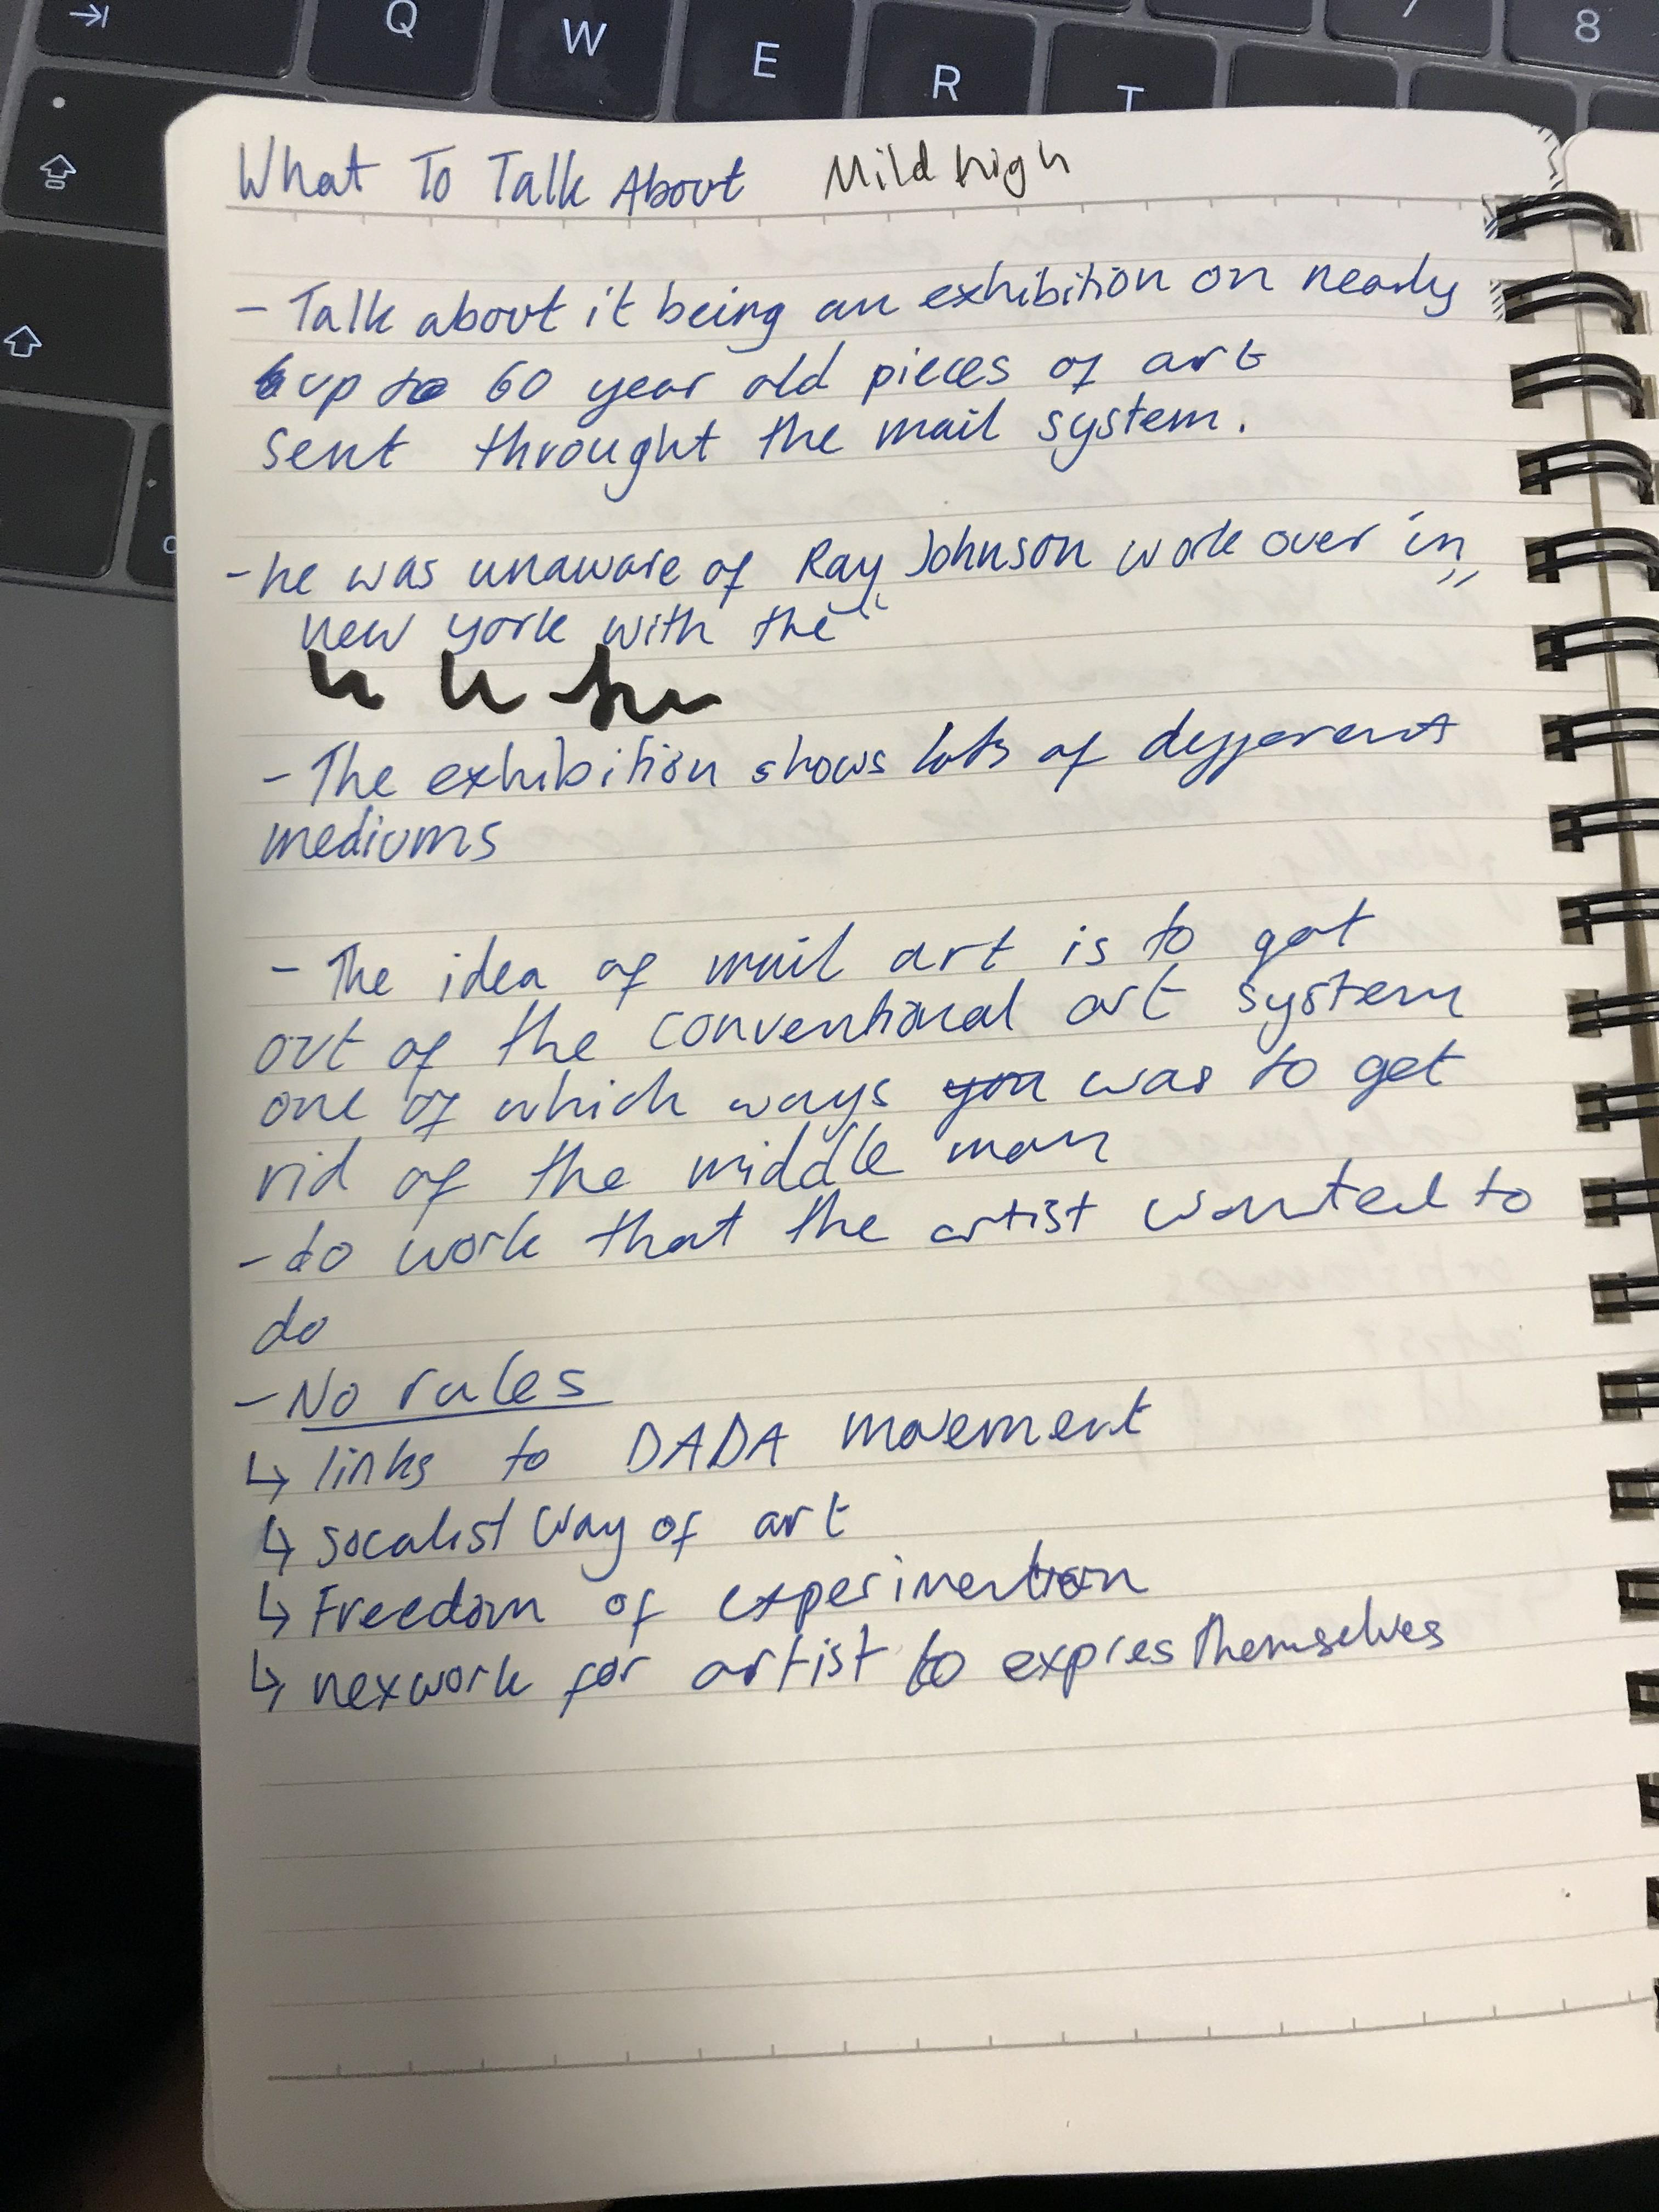 Q W E R T 7 8
What To Talk About Mild high
- Talk about it being an exhibition on nearly
up to 60 year old pieces of art
sent throught the mail system.
- he was unaware of Ray Johnson work over in
new york with the "
"
- The exhibition shows lots of different
mediums
- The idea of mail art is to get
out of the conventional art system
one of which ways you was to get
rid of the middle man
- to work that the artist wanted to
do
- No rules
↳ links to DADA movement
↳ socalist way of art
↳ Freedom of experimention
↳ nexwork for artist to expres themselves